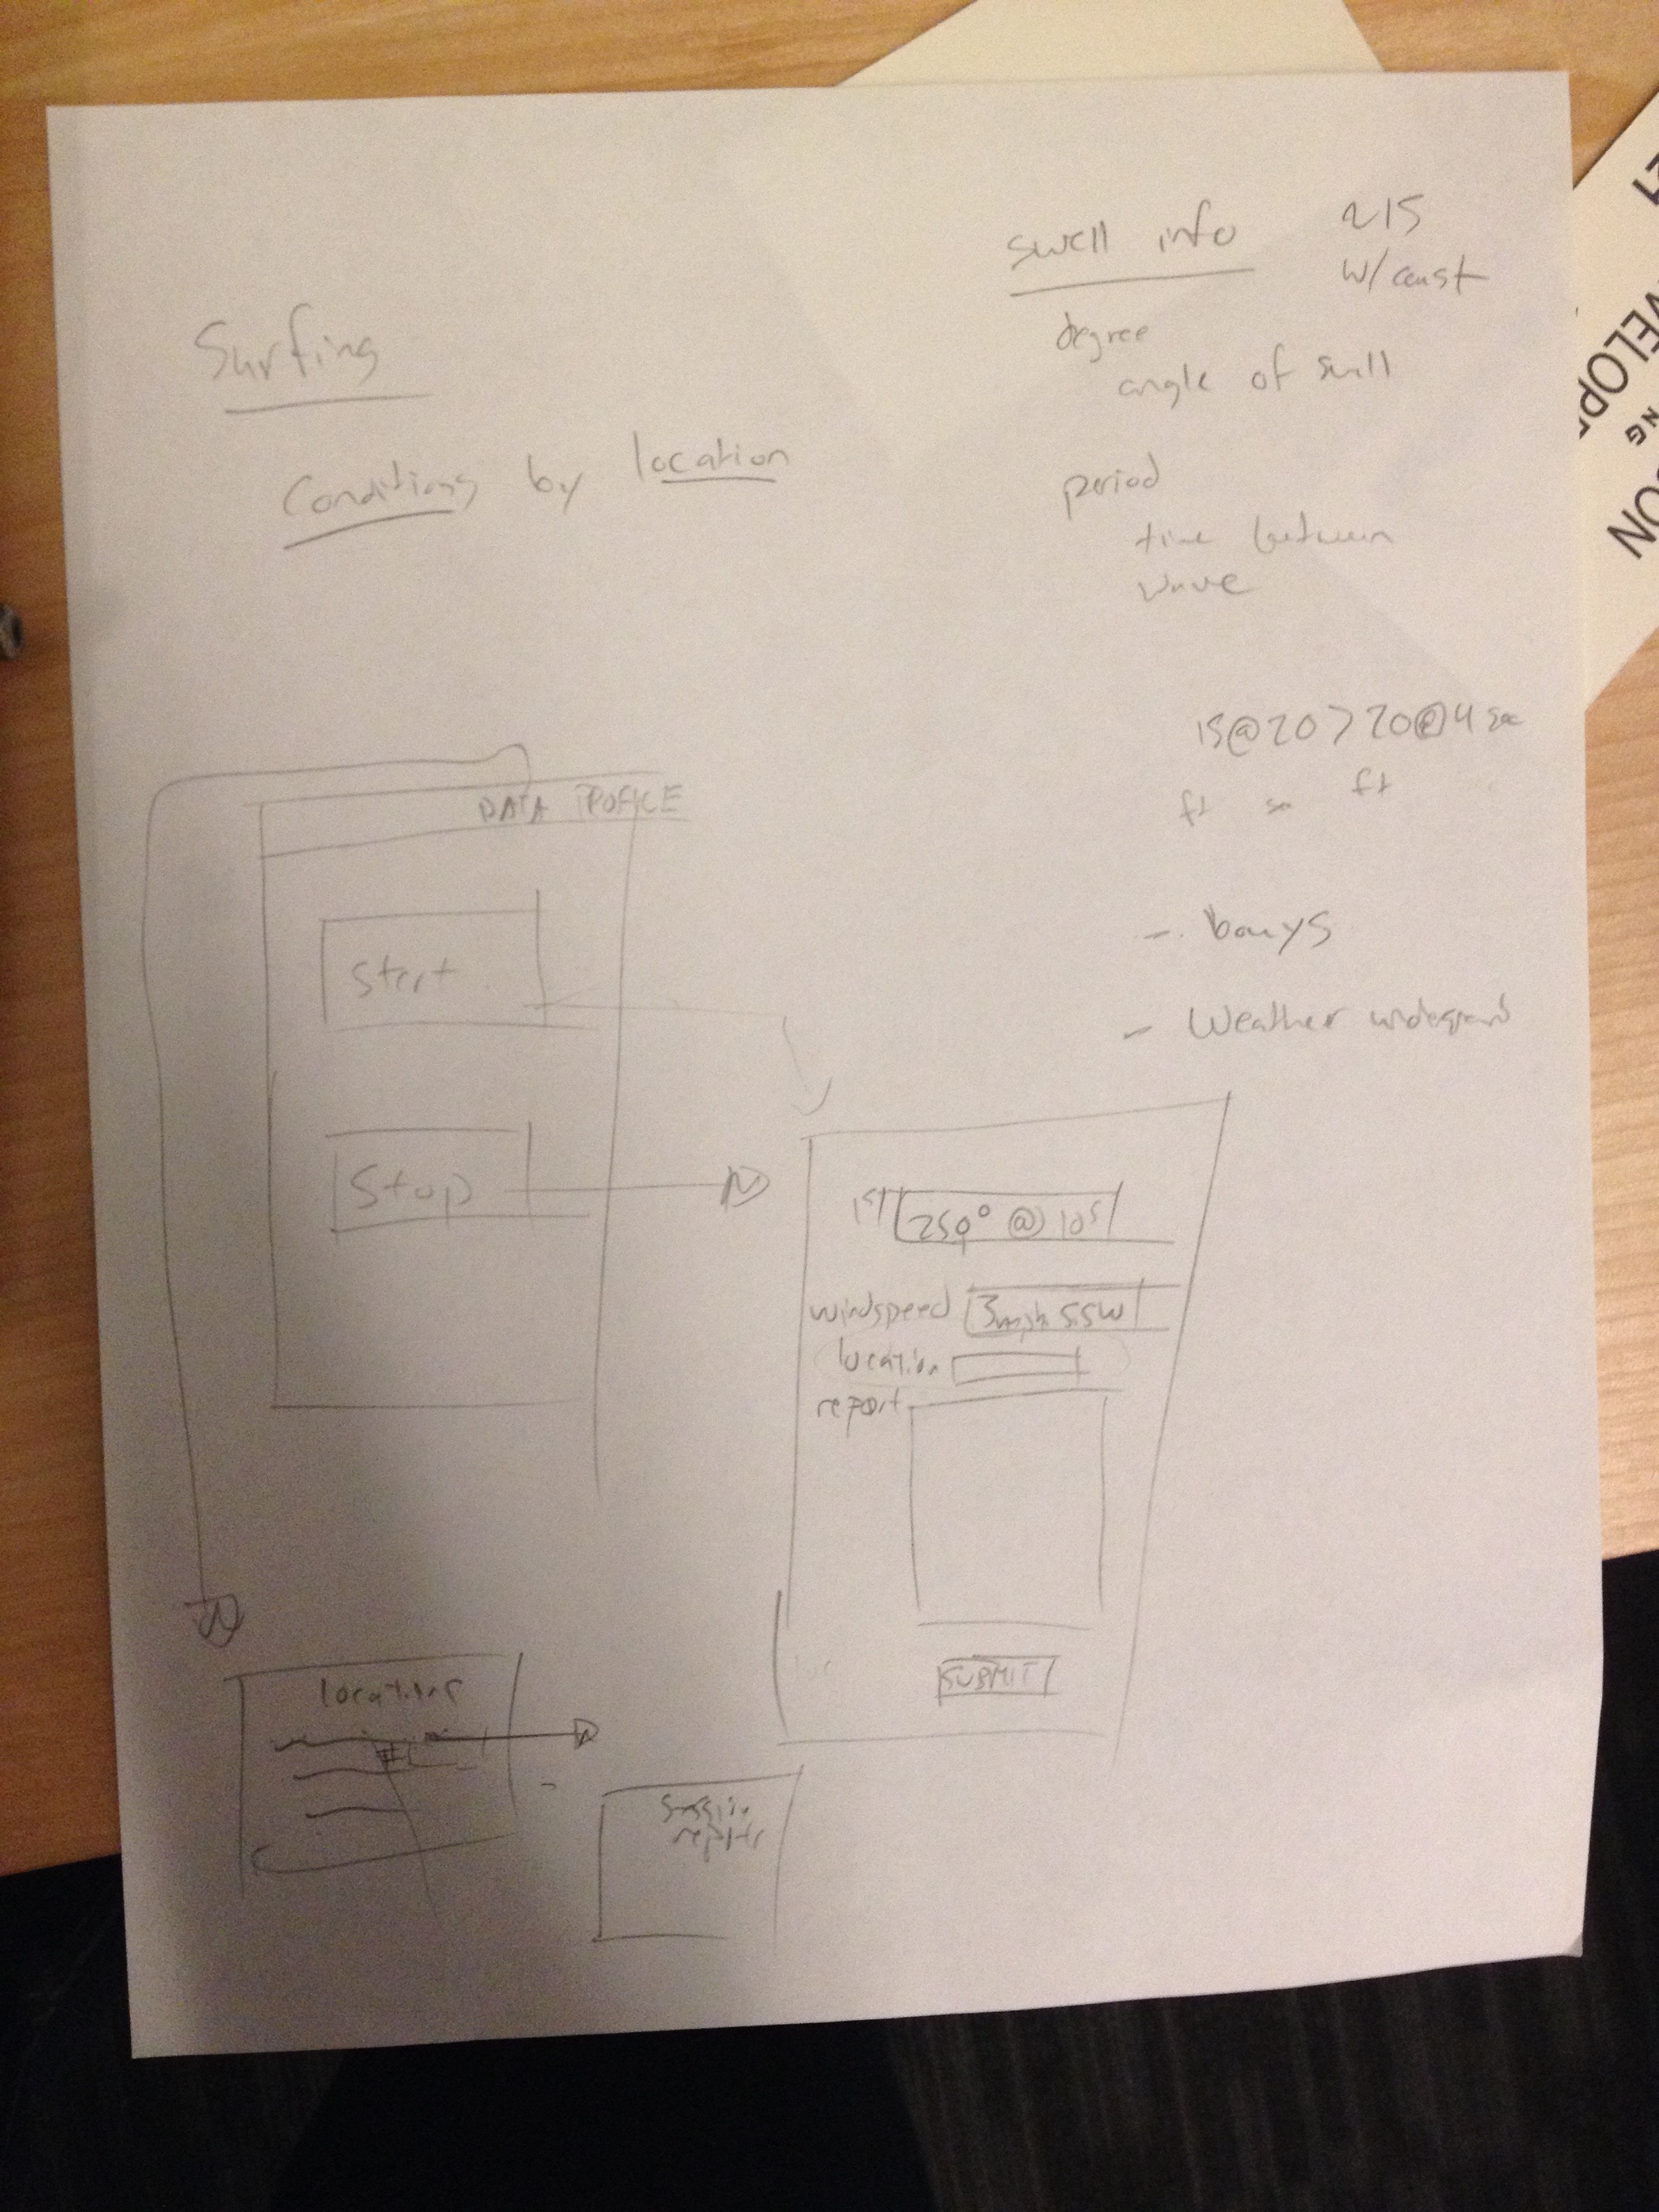 Surfing
Conditions by location
swell info
215
w/coast
degree
angle of swell
period
time between
wave
15@20 > 20@4 sec
ft sec ft
- bouys
- Weather
DATA PROFILE
Start
Stop
250° @ 10s
windspeed 3mph SSW
location
report
SUBMIT
locations
session
reports
21
VELOP
NG
SON